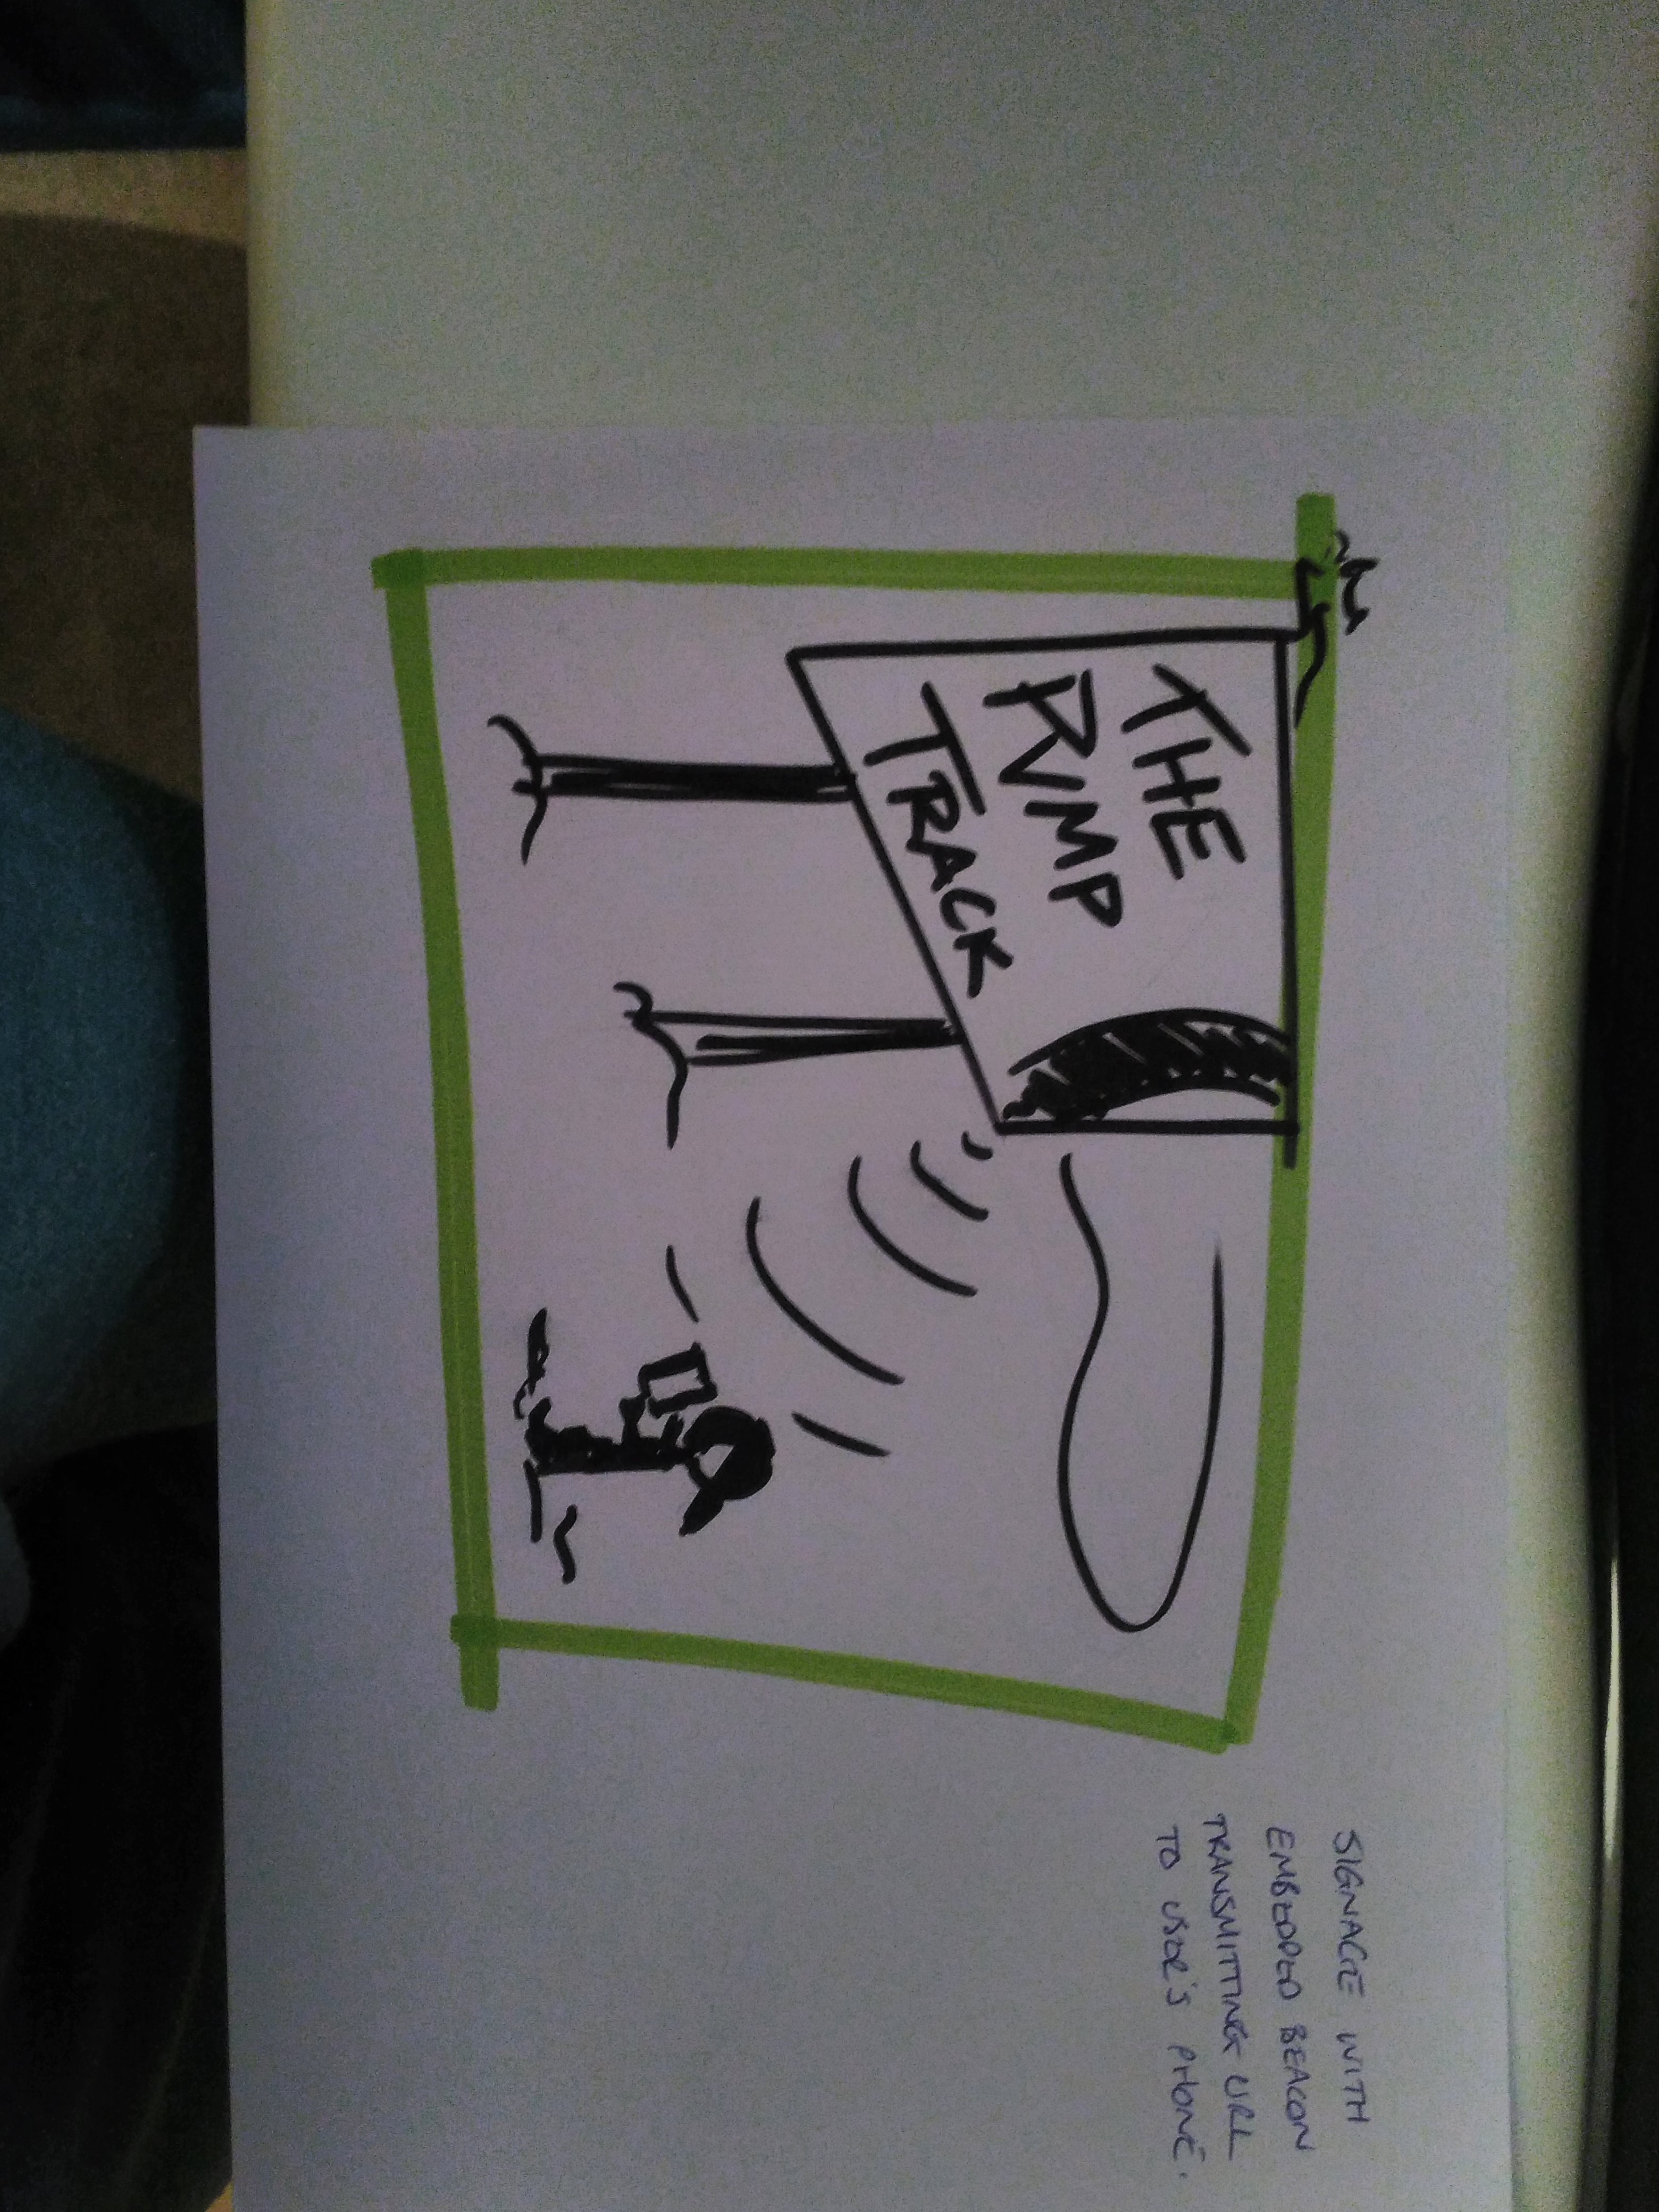 THE
PUMP
TRACK
SIGNAGE WITH
EMBEDDED BEACON
TRANSMITTING URL
TO USER'S PHONE.